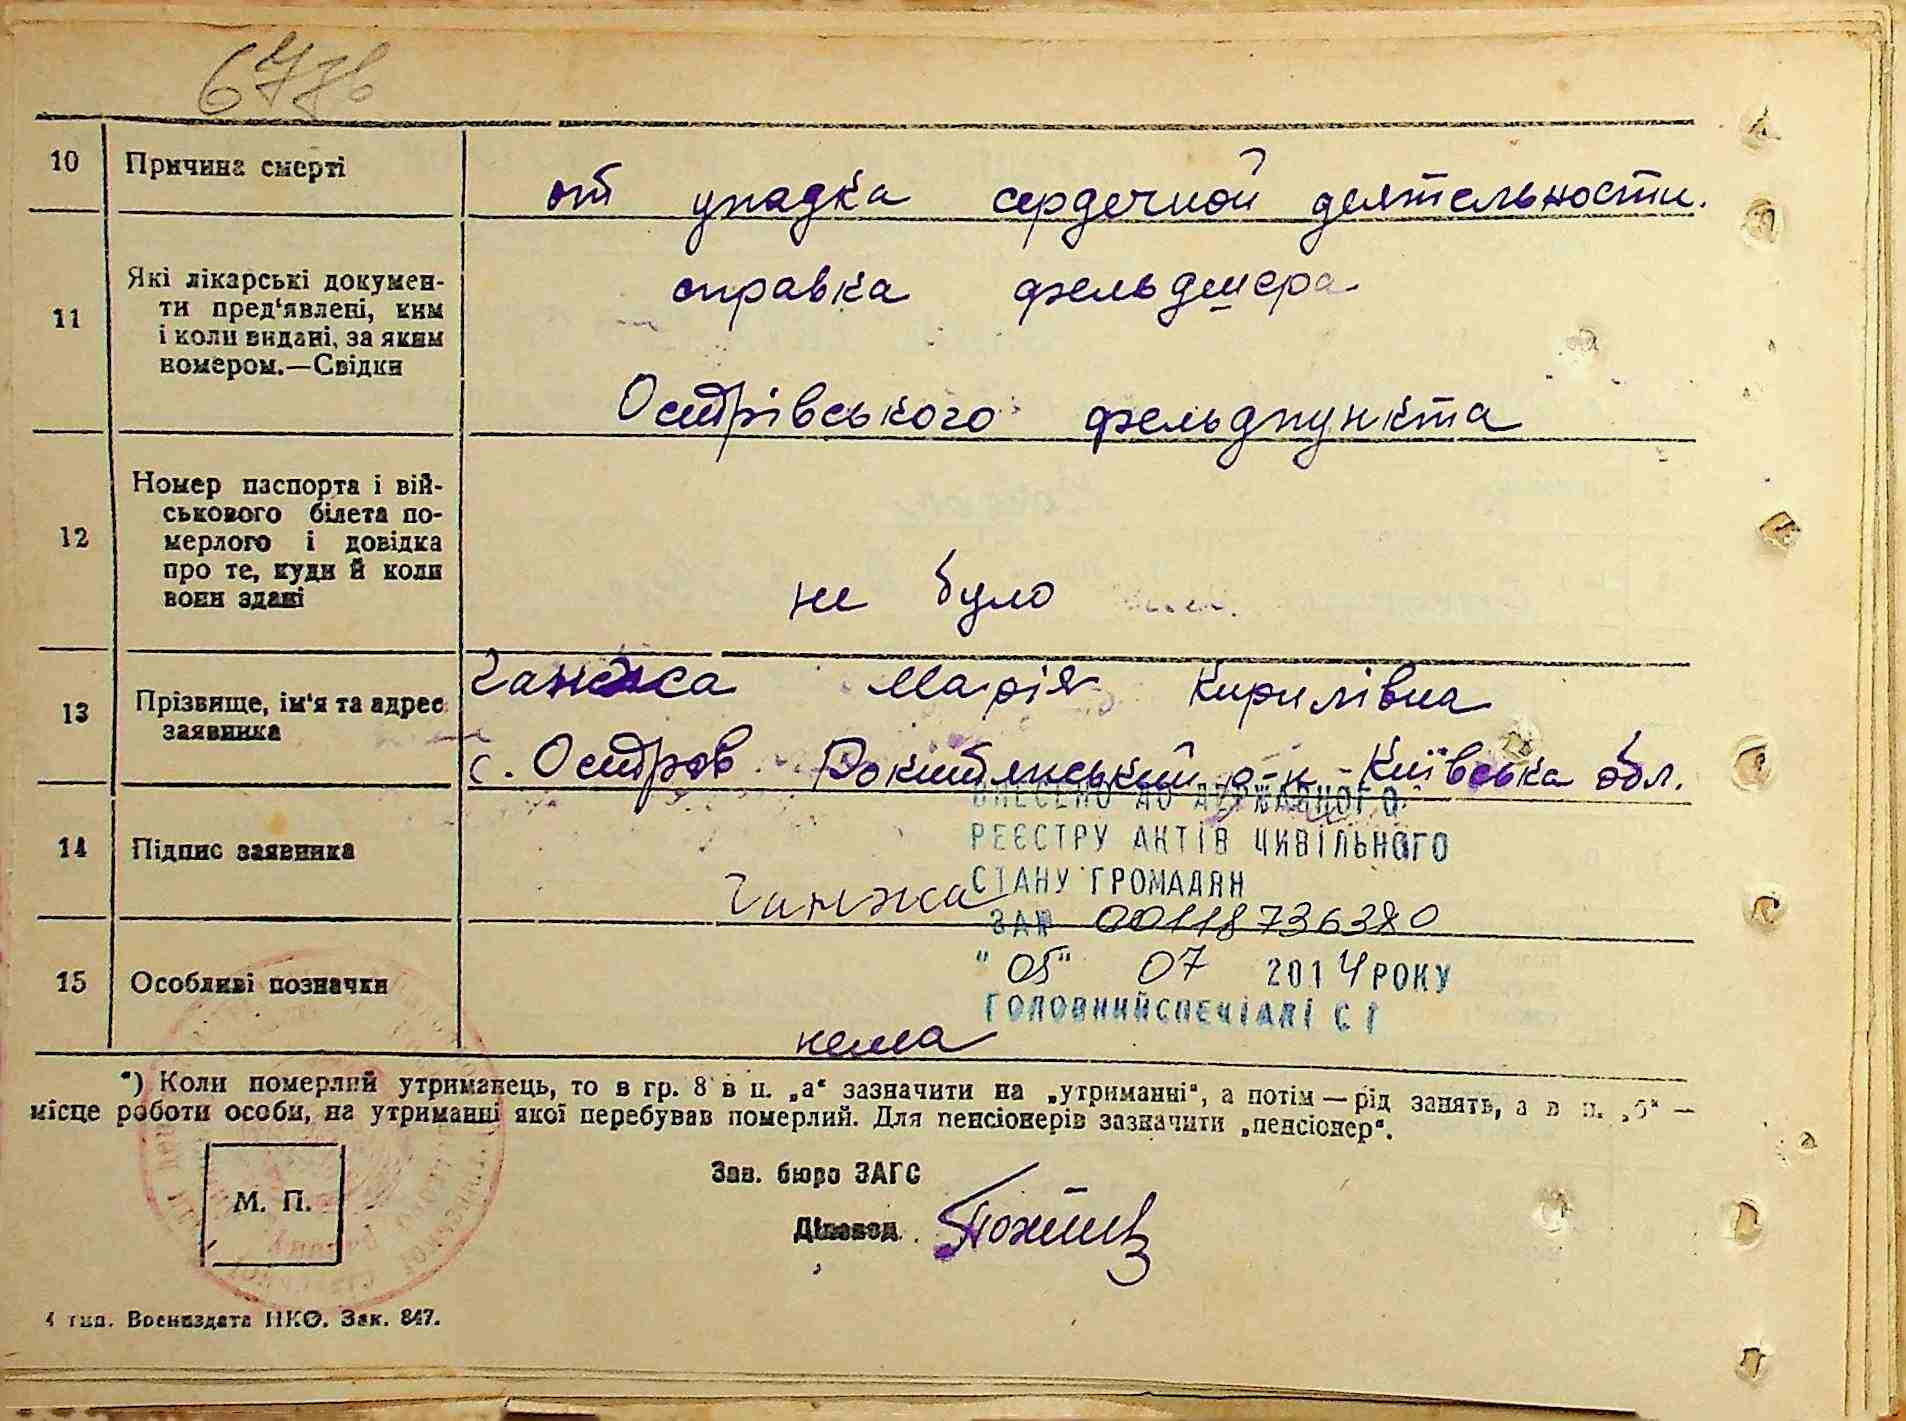 10 Причина смерті от упадка сердечной деятельности.
11 Які лікарські докумен-
ти пред'явлені, ким
і коли видані, за яким
номером.—Свідки
справка фельдшера
Острівського фельдпункта
12 Номер паспорта і вій-
ськового білета по-
мерлого і довідка
про те, куди й коли
вони здані
не було
13 Прізвище, ім'я та адрес
заявника
Ганжа Марія Кирилівна
с. Остров Рокитянський р-н Київська обл.
14 Підпис заявника
Ганжа
ВНЕСЕНО ДО ДЕРЖАВНОГО
РЕЄСТРУ АКТІВ ЦИВІЛЬНОГО
СТАНУ ГРОМАДЯН
ЗА № 00118736380
"05" 07 2014 РОКУ
ГОЛОВНИЙ СПЕЦІАЛІСТ
15 Особливі позначки
нема
*) Коли померлий утриманець, то в гр. 8 в п. „а“ зазначити на „утриманні“, а потім — рід занять, а в п. „б“ —
місце роботи особи, на утриманні якої перебував померлий. Для пенсіонерів зазначити „пенсіонер“.
М. П.
Зав. бюро ЗАГС
Діловод
4 тип. Воениздата НКО. Зак. 847.